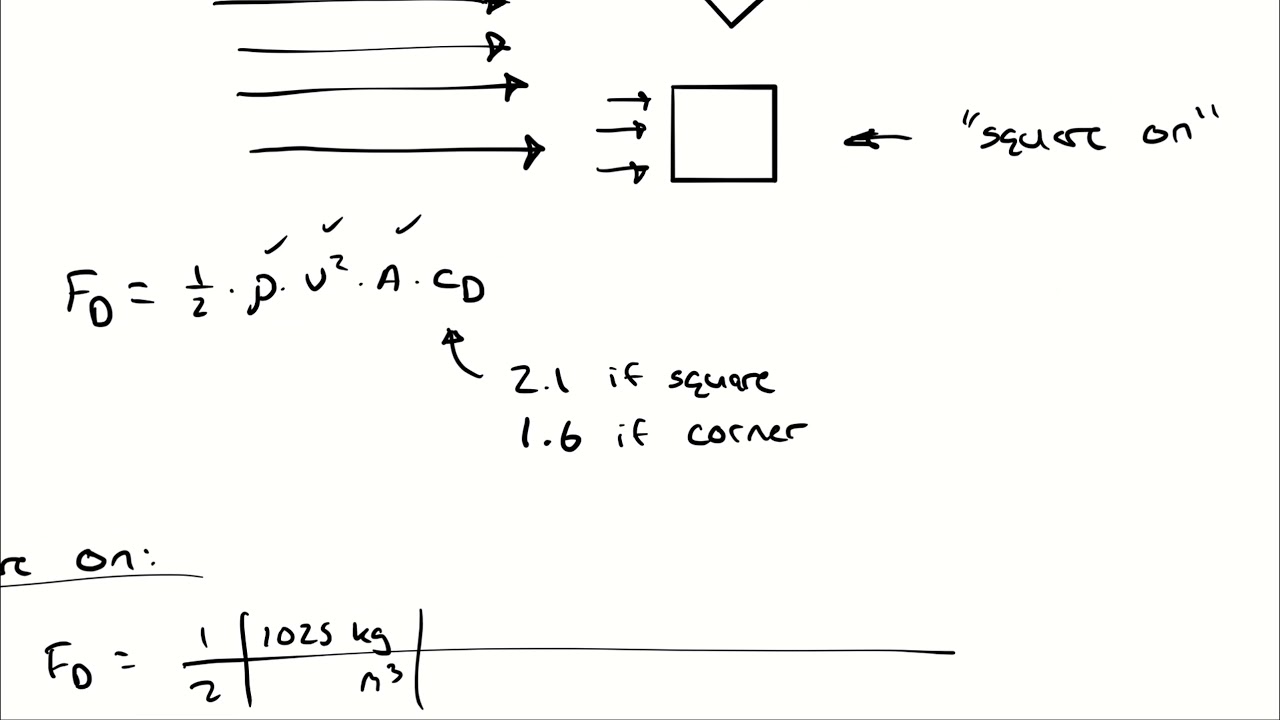 "square on"
F_D = 1/2 · ρ · υ² · A · C_D
2.1 if square
1.6 if corner
re on:
F_D = 1/2 | 1025 kg / m³ |